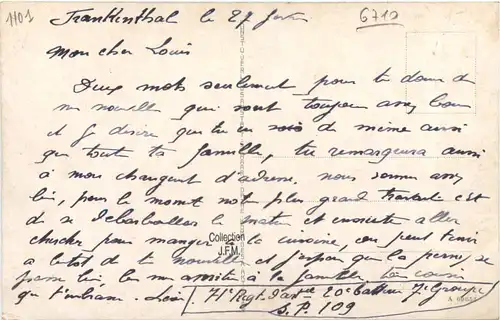 1101
6710
Frankenthal le 27 février
Mon cher Louis
Deux mots seulement pour te donner de
mes nouvelles qui sont toujours assez bonne
et Je désire que tu en sois de même ainsi
que tout ta famille, tu remarquera aussi
à mon changement d'adresse. nous sommes assez
bien, pour le moment notre plus grand travail est
de se debarbouiller le matin et ensuite aller
chercher pour manger à la cuisine, on peut
de tes nouvelles et j'espère que la
à la famille ton cousin
qui t'embrasse. Léon
71e Regt d'art 20e batterie 7e Groupe
S.P. 109
Collection
J.F.M.